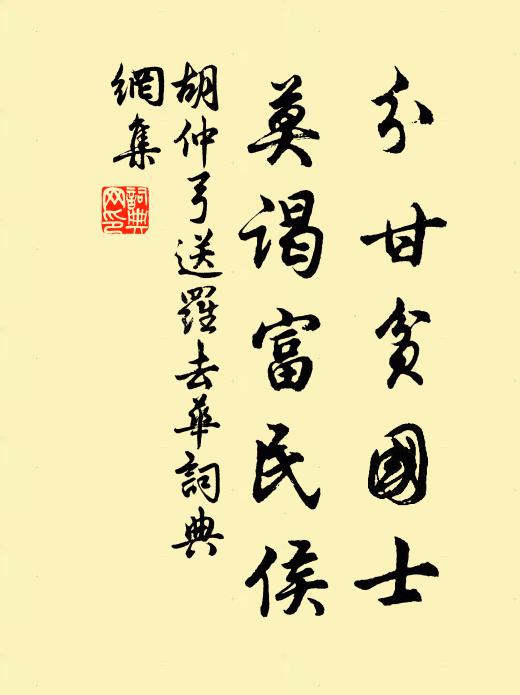 分甘貧國士
莫謁富民侯
胡仲弓送羅去華詞典
網集
詞典網印